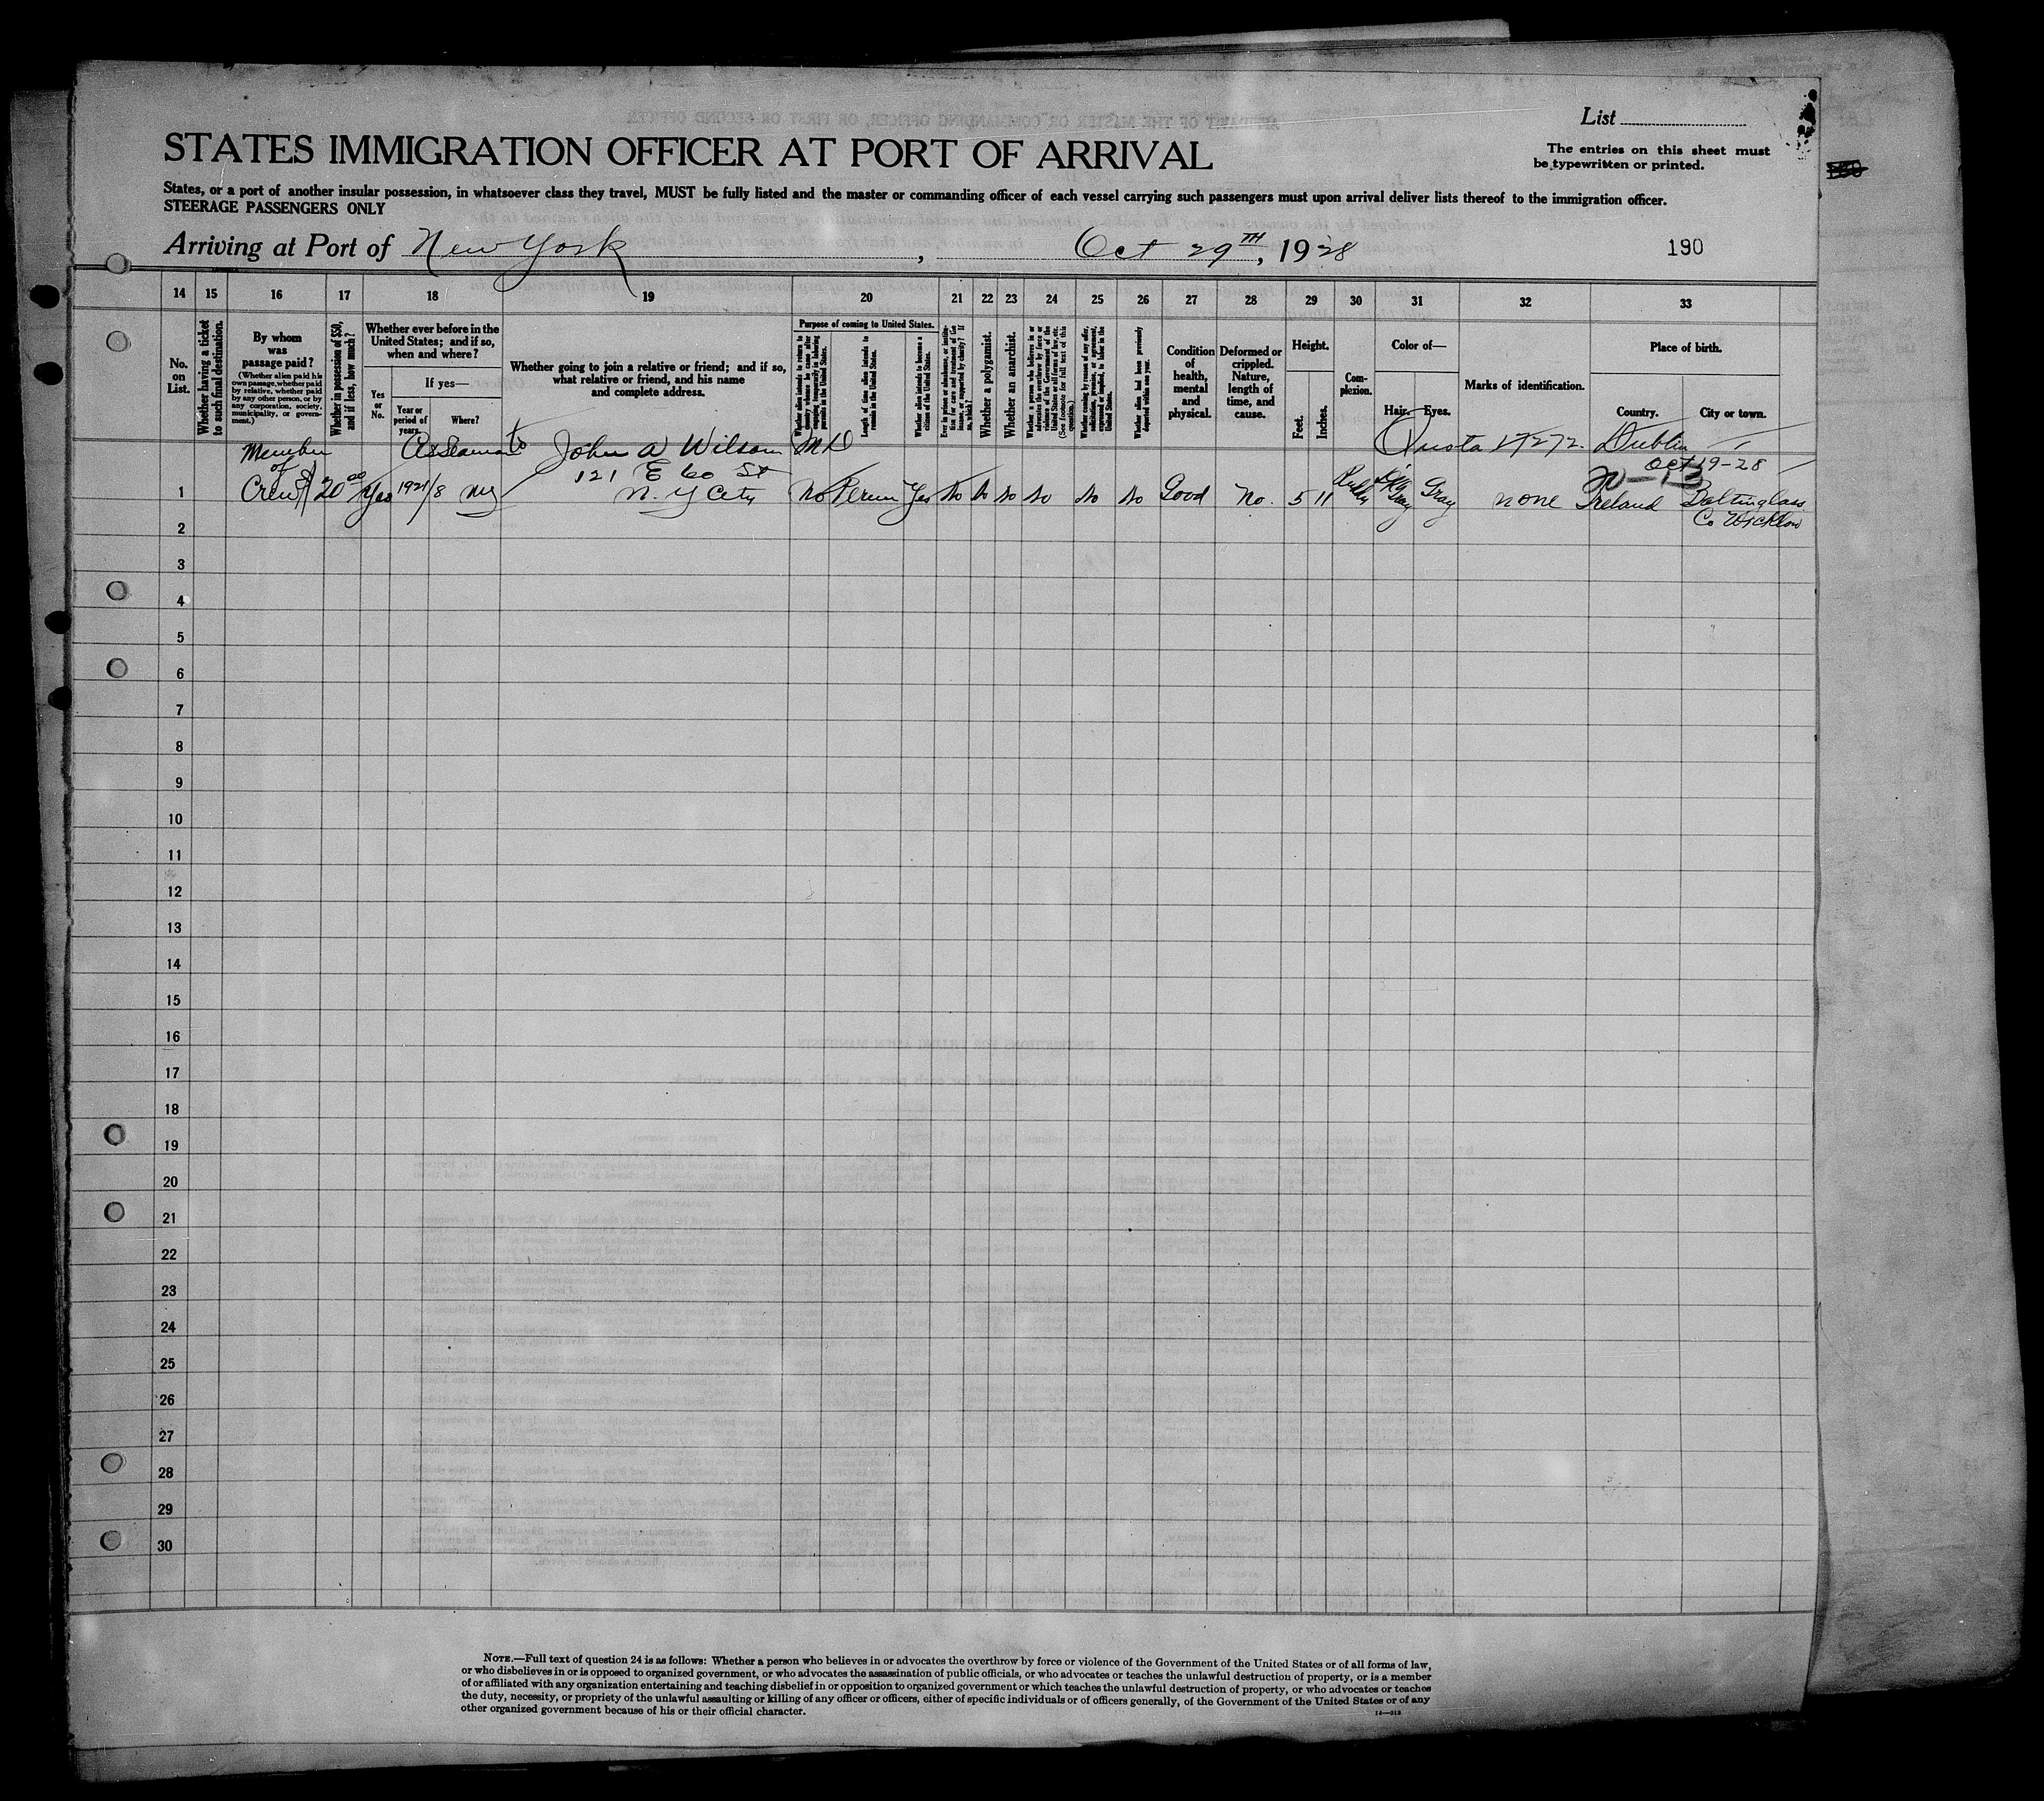 List
STATES IMMIGRATION OFFICER AT PORT OF ARRIVAL
The entries on this sheet must
be typewritten or printed.
States, or a port of another insular possession, in whatsoever class they travel, MUST be fully listed and the master or commanding officer of each vessel carrying such passengers must upon arrival deliver lists thereof to the immigration officer.
STEERAGE PASSENGERS ONLY
Arriving at Port of New York, Oct 29TH, 1928
190
14 15 16 17 18 19 20 21 22 23 24 25 26 27 28 29 30 31 32 33
No.
on
List.
Whether having a ticket
to such final destination.
By whom
was
passage paid?
(Whether alien paid his
own passage, whether paid
by relative, whether paid
by any other person, or by
any corporation, society,
municipality, or govern-
ment.)
Whether in possession of $50,
and if less, how much?
Whether ever before in the
United States; and if so,
when and where?
Yes
or
No.
If yes—
Year or
period of
years.
Where?
Whether going to join a relative or friend; and if so,
what relative or friend, and his name
and complete address.
Purpose of coming to United States.
Length of time alien intends to
remain in the United States.
Whether alien intends to become a
citizen of the United States.
Whether a polygamist.
Whether an anarchist.
Whether alien has been previously
deported within one year.
Condition
of
health,
mental
and
physical.
Deformed or
crippled.
Nature,
length of
time, and
cause.
Height.
Feet.
Inches.
Com-
plexion.
Color of—
Hair. Eyes.
Marks of identification.
Place of birth.
Country.
City or town.
Member
of
Crew
As Seaman
to
John A Wilson MD
121 E 60 St
N. Y City
Quota 17272. Dublin
Oct 19-28
1 $20 00 Yes 1921/8 NY No Perm Yes No No No No No No Good No. 5 11 Ruddy Gray Gray none Ireland Baltinglass
Co Wicklow
2
3
4
5
6
7
8
9
10
11
12
13
14
15
16
17
18
19
20
21
22
23
24
25
26
27
28
29
30
NOTE.—Full text of question 24 is as follows: Whether a person who believes in or advocates the overthrow by force or violence of the Government of the United States or of all forms of law,
or who disbelieves in or is opposed to organized government, or who advocates the assassination of public officials, or who advocates or teaches the unlawful destruction of property, or is a member
of or affiliated with any organization entertaining and teaching disbelief in or opposition to organized government or which teaches the unlawful destruction of property, or who advocates or teaches
the duty, necessity, or propriety of the unlawful assaulting or killing of any officer or officers, either of specific individuals or of officers generally, of the Government of the United States or of any
other organized government because of his or their official character.
14—313